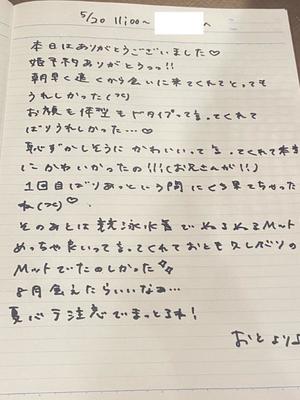 5/20 11:00〜 へ
本日はありがとうございました♡
姫予約ありがとうっ!!
朝早く遠くから会いに来てくれてとっても
うれしかった
お顔も体型もドタイプって言ってくれて
ばりうれしかった…♡
恥ずかしそうにかわいいって言ってくれて本当
にかわいかったの!!!(お兄さんが!!)
1回目ばりあっという間に
ちゃった
ね ♡
そのあとは競泳水着でぬるぬるMット
めっちゃ良いって言ってくれておとも久しぶりの
Mットでたのしかった
8月会えたらいいなぁ…
夏バテ注意でまっとるね!
おとより